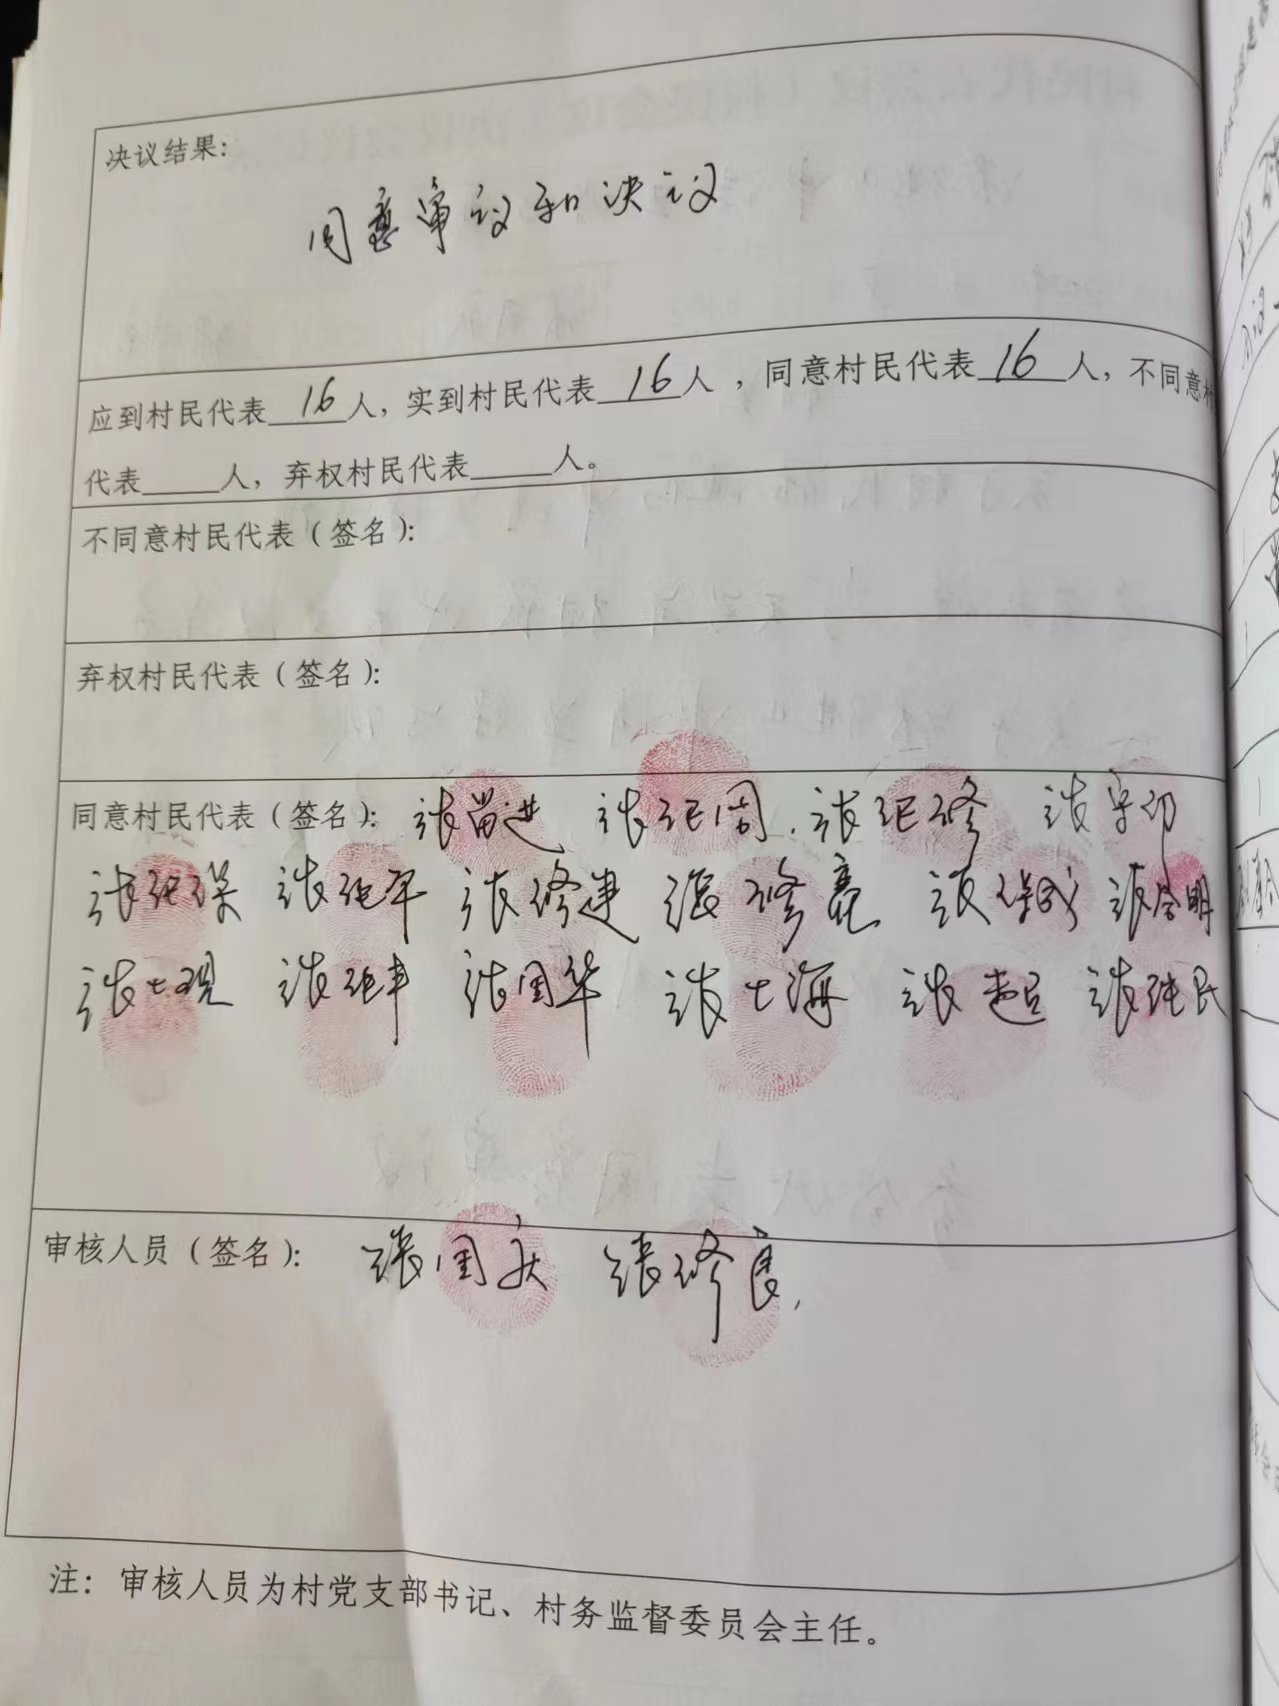 决议结果:
同意审议和决议
应到村民代表16人,实到村民代表16人,同意村民代表16人,不同意村
代表人,弃权村民代表人。
不同意村民代表(签名):
弃权村民代表(签名):
同意村民代表(签名): 张留进 张纪周 张纪修 张
张纪保 张纪军 张修建 张修亮 张保成 张合明
张士观 张纪丰 张国华 张士海 张超 张纯民
审核人员(签名): 张国庆 张修良
注: 审核人员为村党支部书记、村务监督委员会主任。